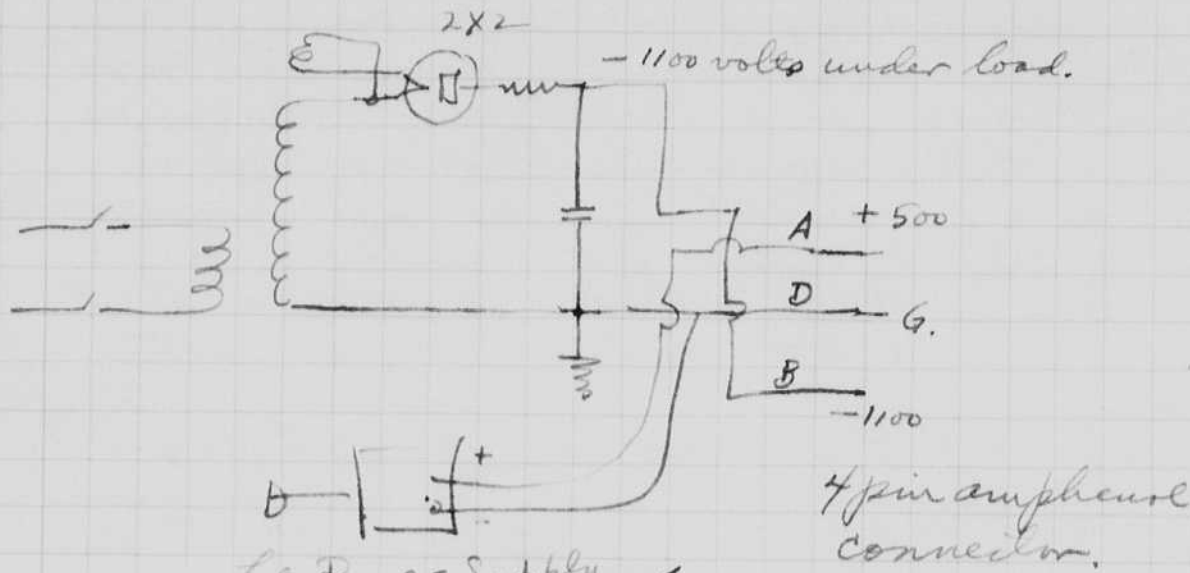 2X2
-1100 volts under load.
A + 500
D G.
B
-1100
+
4 pin amphenol
connector.
Power Supply